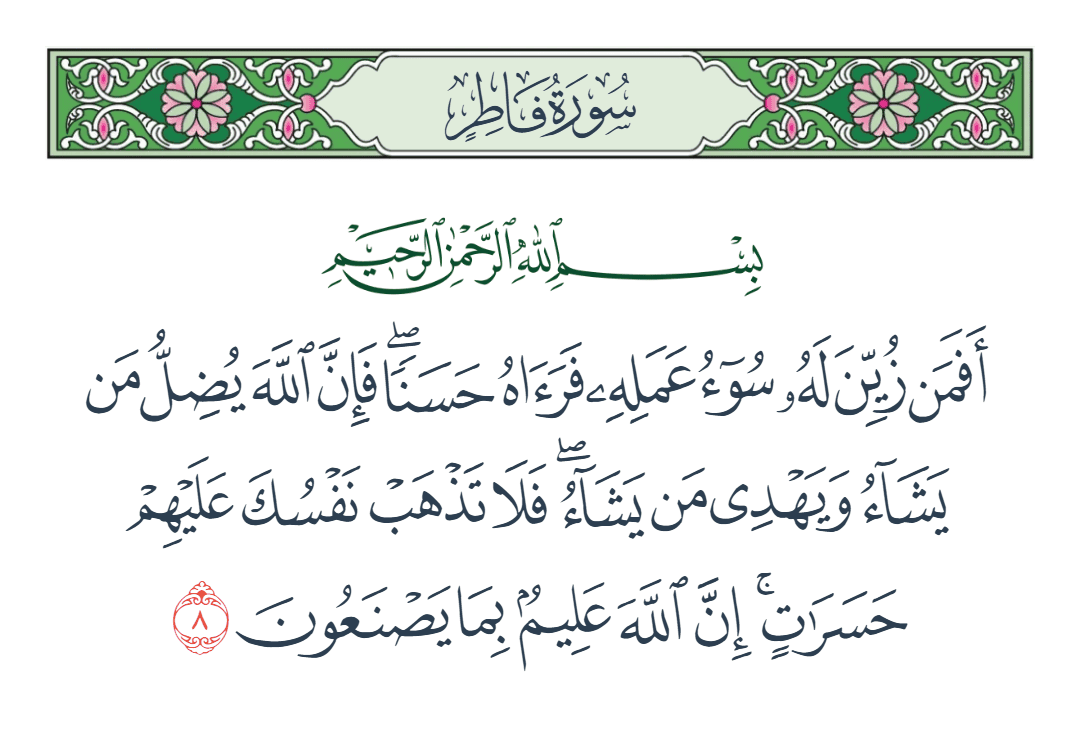 سُورَةُ فَاطِرٍ
بِسْمِ ٱللَّهِ ٱلرَّحْمَٰنِ ٱلرَّحِيمِ
أَفَمَن زُيِّنَ لَهُۥ سُوٓءُ عَمَلِهِۦ فَرَءَاهُ حَسَنٗاۖ فَإِنَّ ٱللَّهَ يُضِلُّ مَن
يَشَآءُ وَيَهۡدِي مَن يَشَآءُۖ فَلَا تَذۡهَبۡ نَفۡسُكَ عَلَيۡهِمۡ
حَسَرَٰتٍۚ إِنَّ ٱللَّهَ عَلِيمُۢ بِمَا يَصۡنَعُونَ ٨